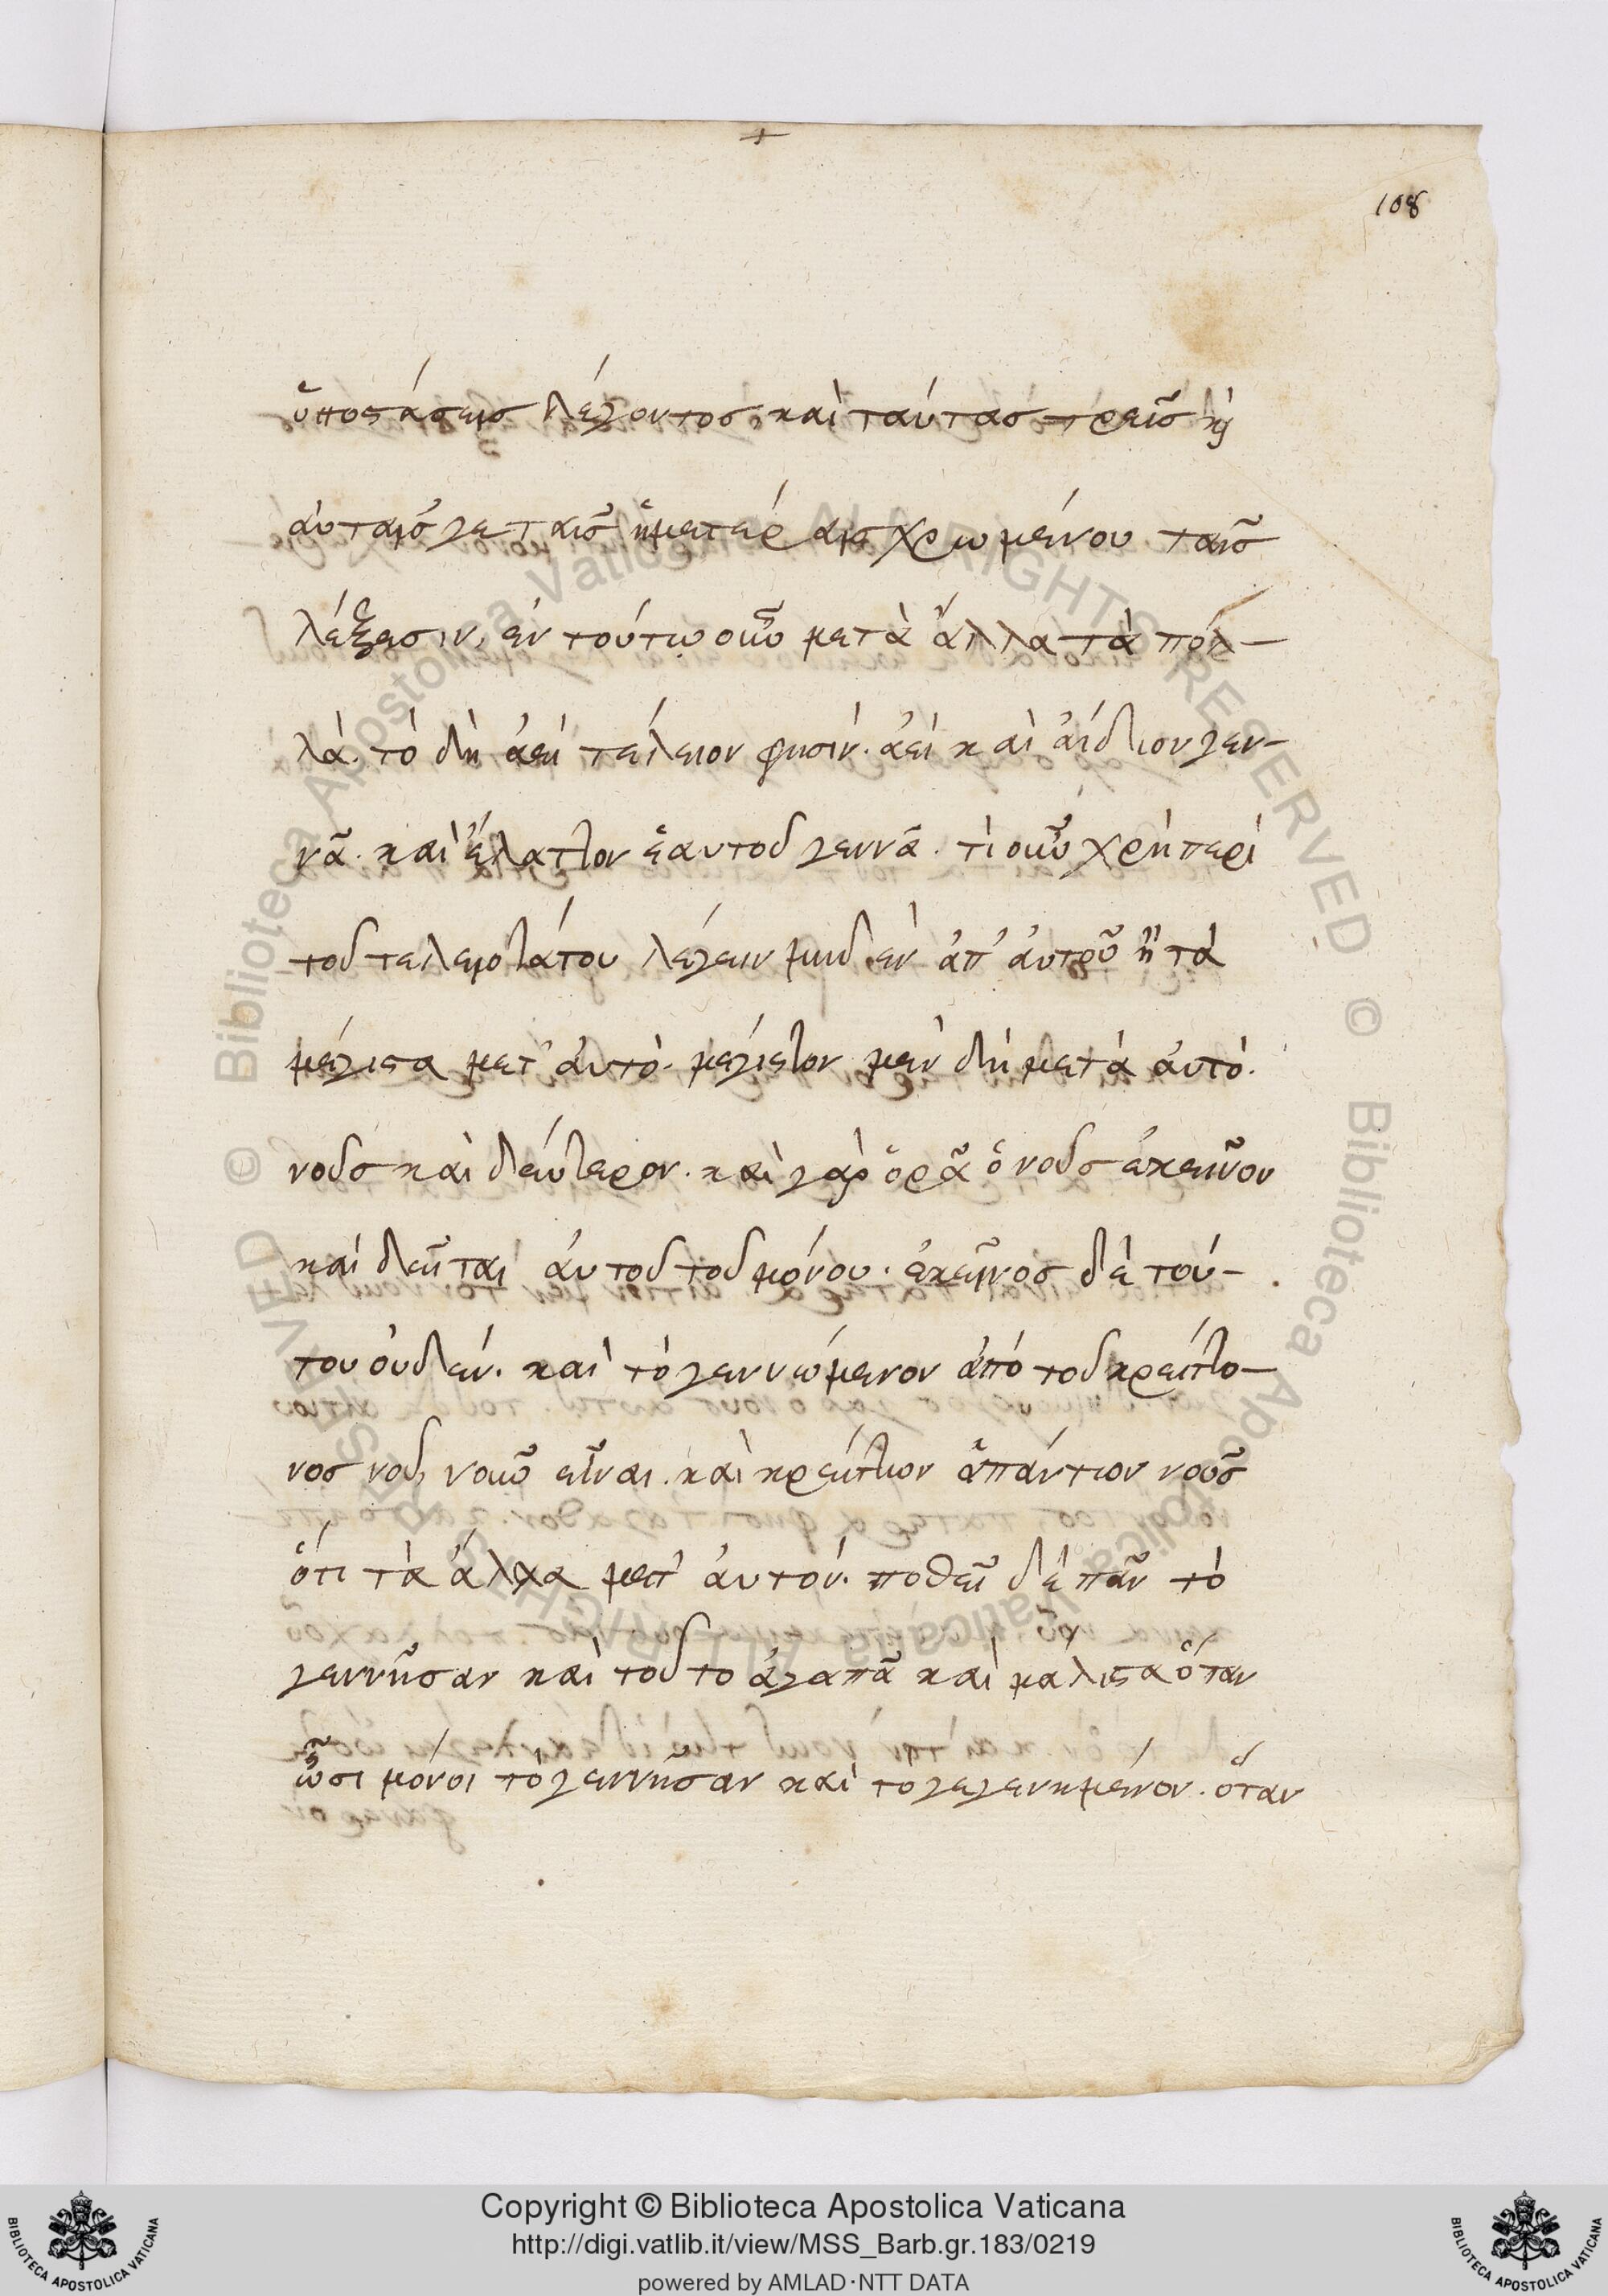 108
ὑποστάσεις λέγοντος, καὶ ταύτας τρεῖς κ̀
ἀυταῖς γε ταῖς ἡμετέραις χρωμένου ταῖς
λέξεσιν, ἐν τούτω οὖν μετὰ ἄλλα τὰ πολ-
λά. τὸ δὴ ἀεὶ τέλειον φησίν. ἀεὶ καὶ ἀίδιον γεν-
νᾶ. καὶ ἔλαττον ἑαυτοῦ γεννᾶ. τί οὖν χρὴ περὶ
τοῦ τελειοτάτου λέγειν μηδὲν ἀπ' ἀυτοῦ ἢ τὰ
μέγιστα μετ' ἀυτό. μέγιστον μὲν δὴ μετὰ ἀυτό.
νοῦς καὶ δεύτερον. καὶ γὰρ ὁρᾶ ὁ νοῦς ἐκεῖνον
καὶ δεῖται ἀυτοῦ τοῦ μόνου. ἐκεῖνος δὲ τού-
του ὀυδέν. καὶ τὸ γεννώμενον ἀπὸ τοῦ κρείττο-
νος νοῦ, νοῦν εἶναι. καὶ κρείττων ἁπάντων νοῦς
ὅτι τὰ ἄλλα μετ' ἀυτόν. ποθεῖ δὲ πᾶν τὸ
γεννῆσαν καὶ τοῦτο ἀγαπᾶ καὶ μάλιστα ὅταν
ὦσι μόνοι τὸ γεννῆσαν καὶ τὸ γεγενημένον. ὅταν
Copyright © Biblioteca Apostolica Vaticana
http://digi.vatlib.it/view/MSS_Barb.gr.183/0219
powered by AMLAD·NTT DATA
BIBLIOTECA APOSTOLICA VATICANA
BIBLIOTECA APOSTOLICA VATICANA
© Biblioteca Apostolica Vaticana ALL RIGHTS RESERVED © Biblioteca Apostolica Vaticana ALL RIGHTS RESERVED